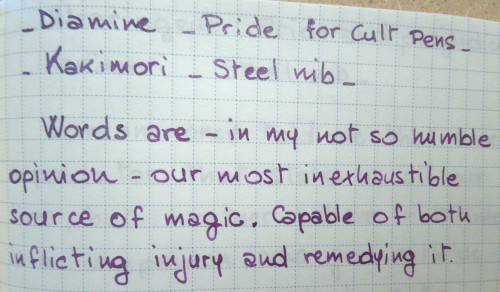 - Diamine - Pride for Cult Pens -
- Kakimori - Steel nib -
Words are - in my not so humble
opinion - our most inexhaustible
source of magic. Capable of both
inflicting injury and remedying it.